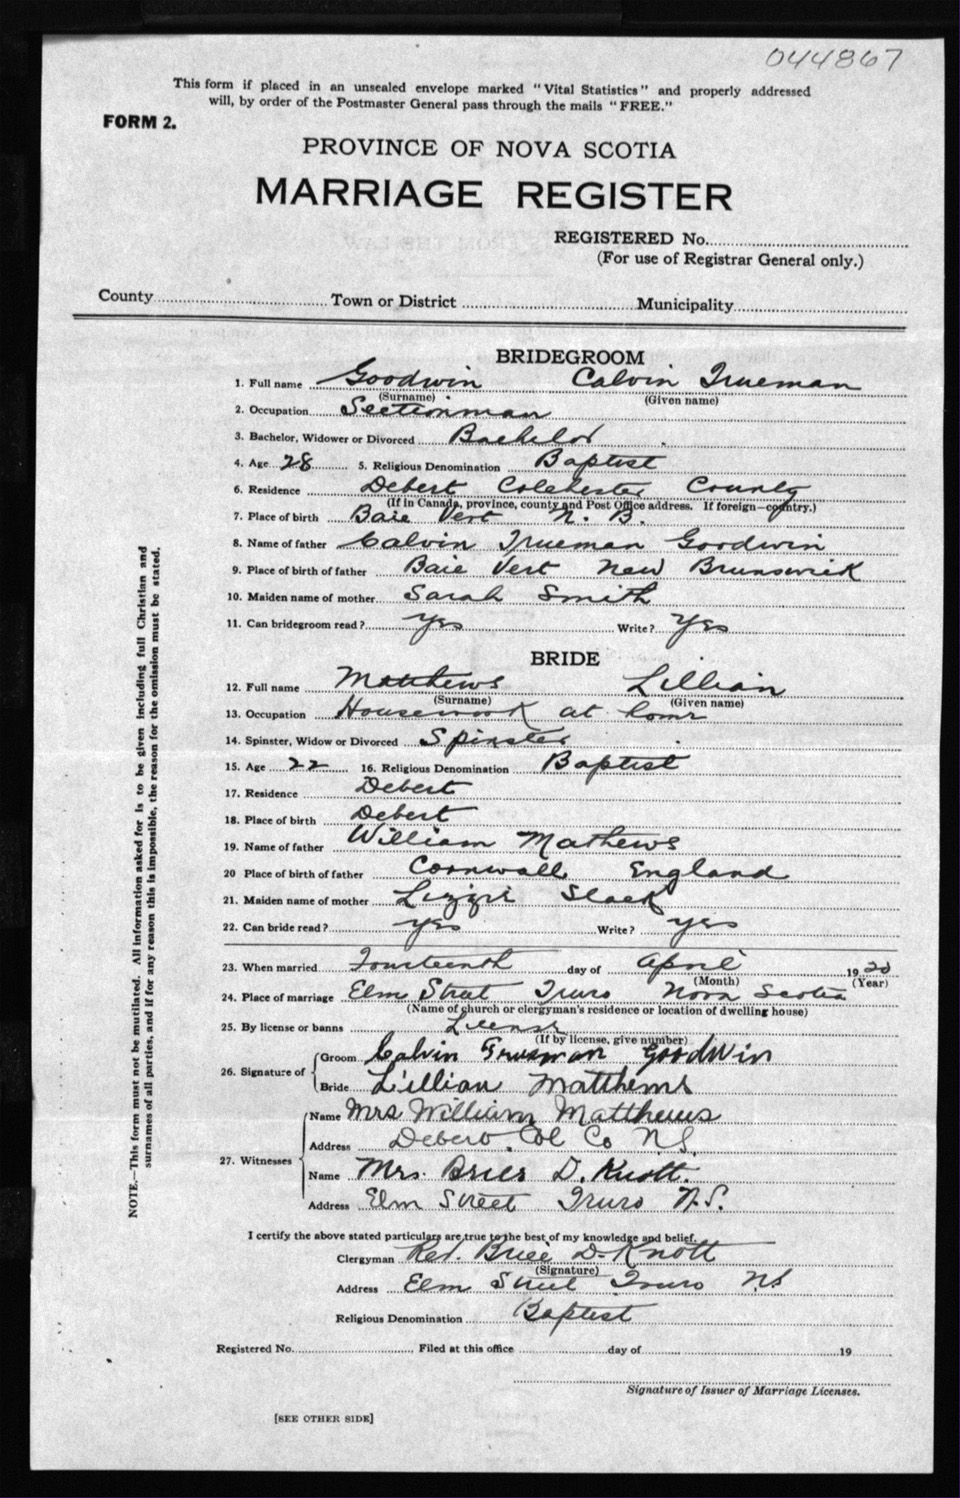 044867
This form if placed in an unsealed envelope marked "Vital Statistics" and properly addressed
will, by order of the Postmaster General pass through the mails "FREE."
FORM 2.
PROVINCE OF NOVA SCOTIA
MARRIAGE REGISTER
REGISTERED No.
(For use of Registrar General only.)
County Town or District Municipality
BRIDEGROOM
1. Full name Goodwin Calvin Trueman
(Surname) (Given name)
2. Occupation Sectionman
3. Bachelor, Widower or Divorced Bachelor
4. Age 28 5. Religious Denomination Baptist
6. Residence Debert Colchester County
(If in Canada, province, county and Post Office address. If foreign—country.)
7. Place of birth Baie Vert N. B.
8. Name of father Calvin Trueman Goodwin
9. Place of birth of father Baie Vert New Brunswick
10. Maiden name of mother Sarah Smith
11. Can bridegroom read? Yes Write? Yes
BRIDE
12. Full name Matthews Lillian
(Surname) (Given name)
13. Occupation Housework at home
14. Spinster, Widow or Divorced Spinster
15. Age 22 16. Religious Denomination Baptist
17. Residence Debert
18. Place of birth Debert
19. Name of father William Mathews
20 Place of birth of father Cornwall England
21. Maiden name of mother Lizzie Slack
22. Can bride read? yes Write? yes
23. When married Fourteenth day of April 1920
(Month) (Year)
24. Place of marriage Elm Street Truro Nova Scotia
(Name of church or clergyman's residence or location of dwelling house)
25. By license or banns License
(If by license, give number)
26. Signature of Groom Calvin Trueman Goodwin
Bride Lillian Matthews
27. Witnesses Name Mrs William Matthews
Address Debert Col Co N.S.
Name Mrs. Brice D. Knott.
Address Elm Street Truro N.S.
I certify the above stated particulars are true to the best of my knowledge and belief.
Clergyman Rev. Brice D. Knott
(Signature)
Address Elm Street Truro N.S
Religious Denomination Baptist
Registered No. Filed at this office day of 19
Signature of Issuer of Marriage Licenses.
[SEE OTHER SIDE]
NOTE.—This form must not be mutilated. All information asked for is to be given including full Christian and
surnames of all parties, and if for any reason this is impossible, the reason for the omission must be stated.